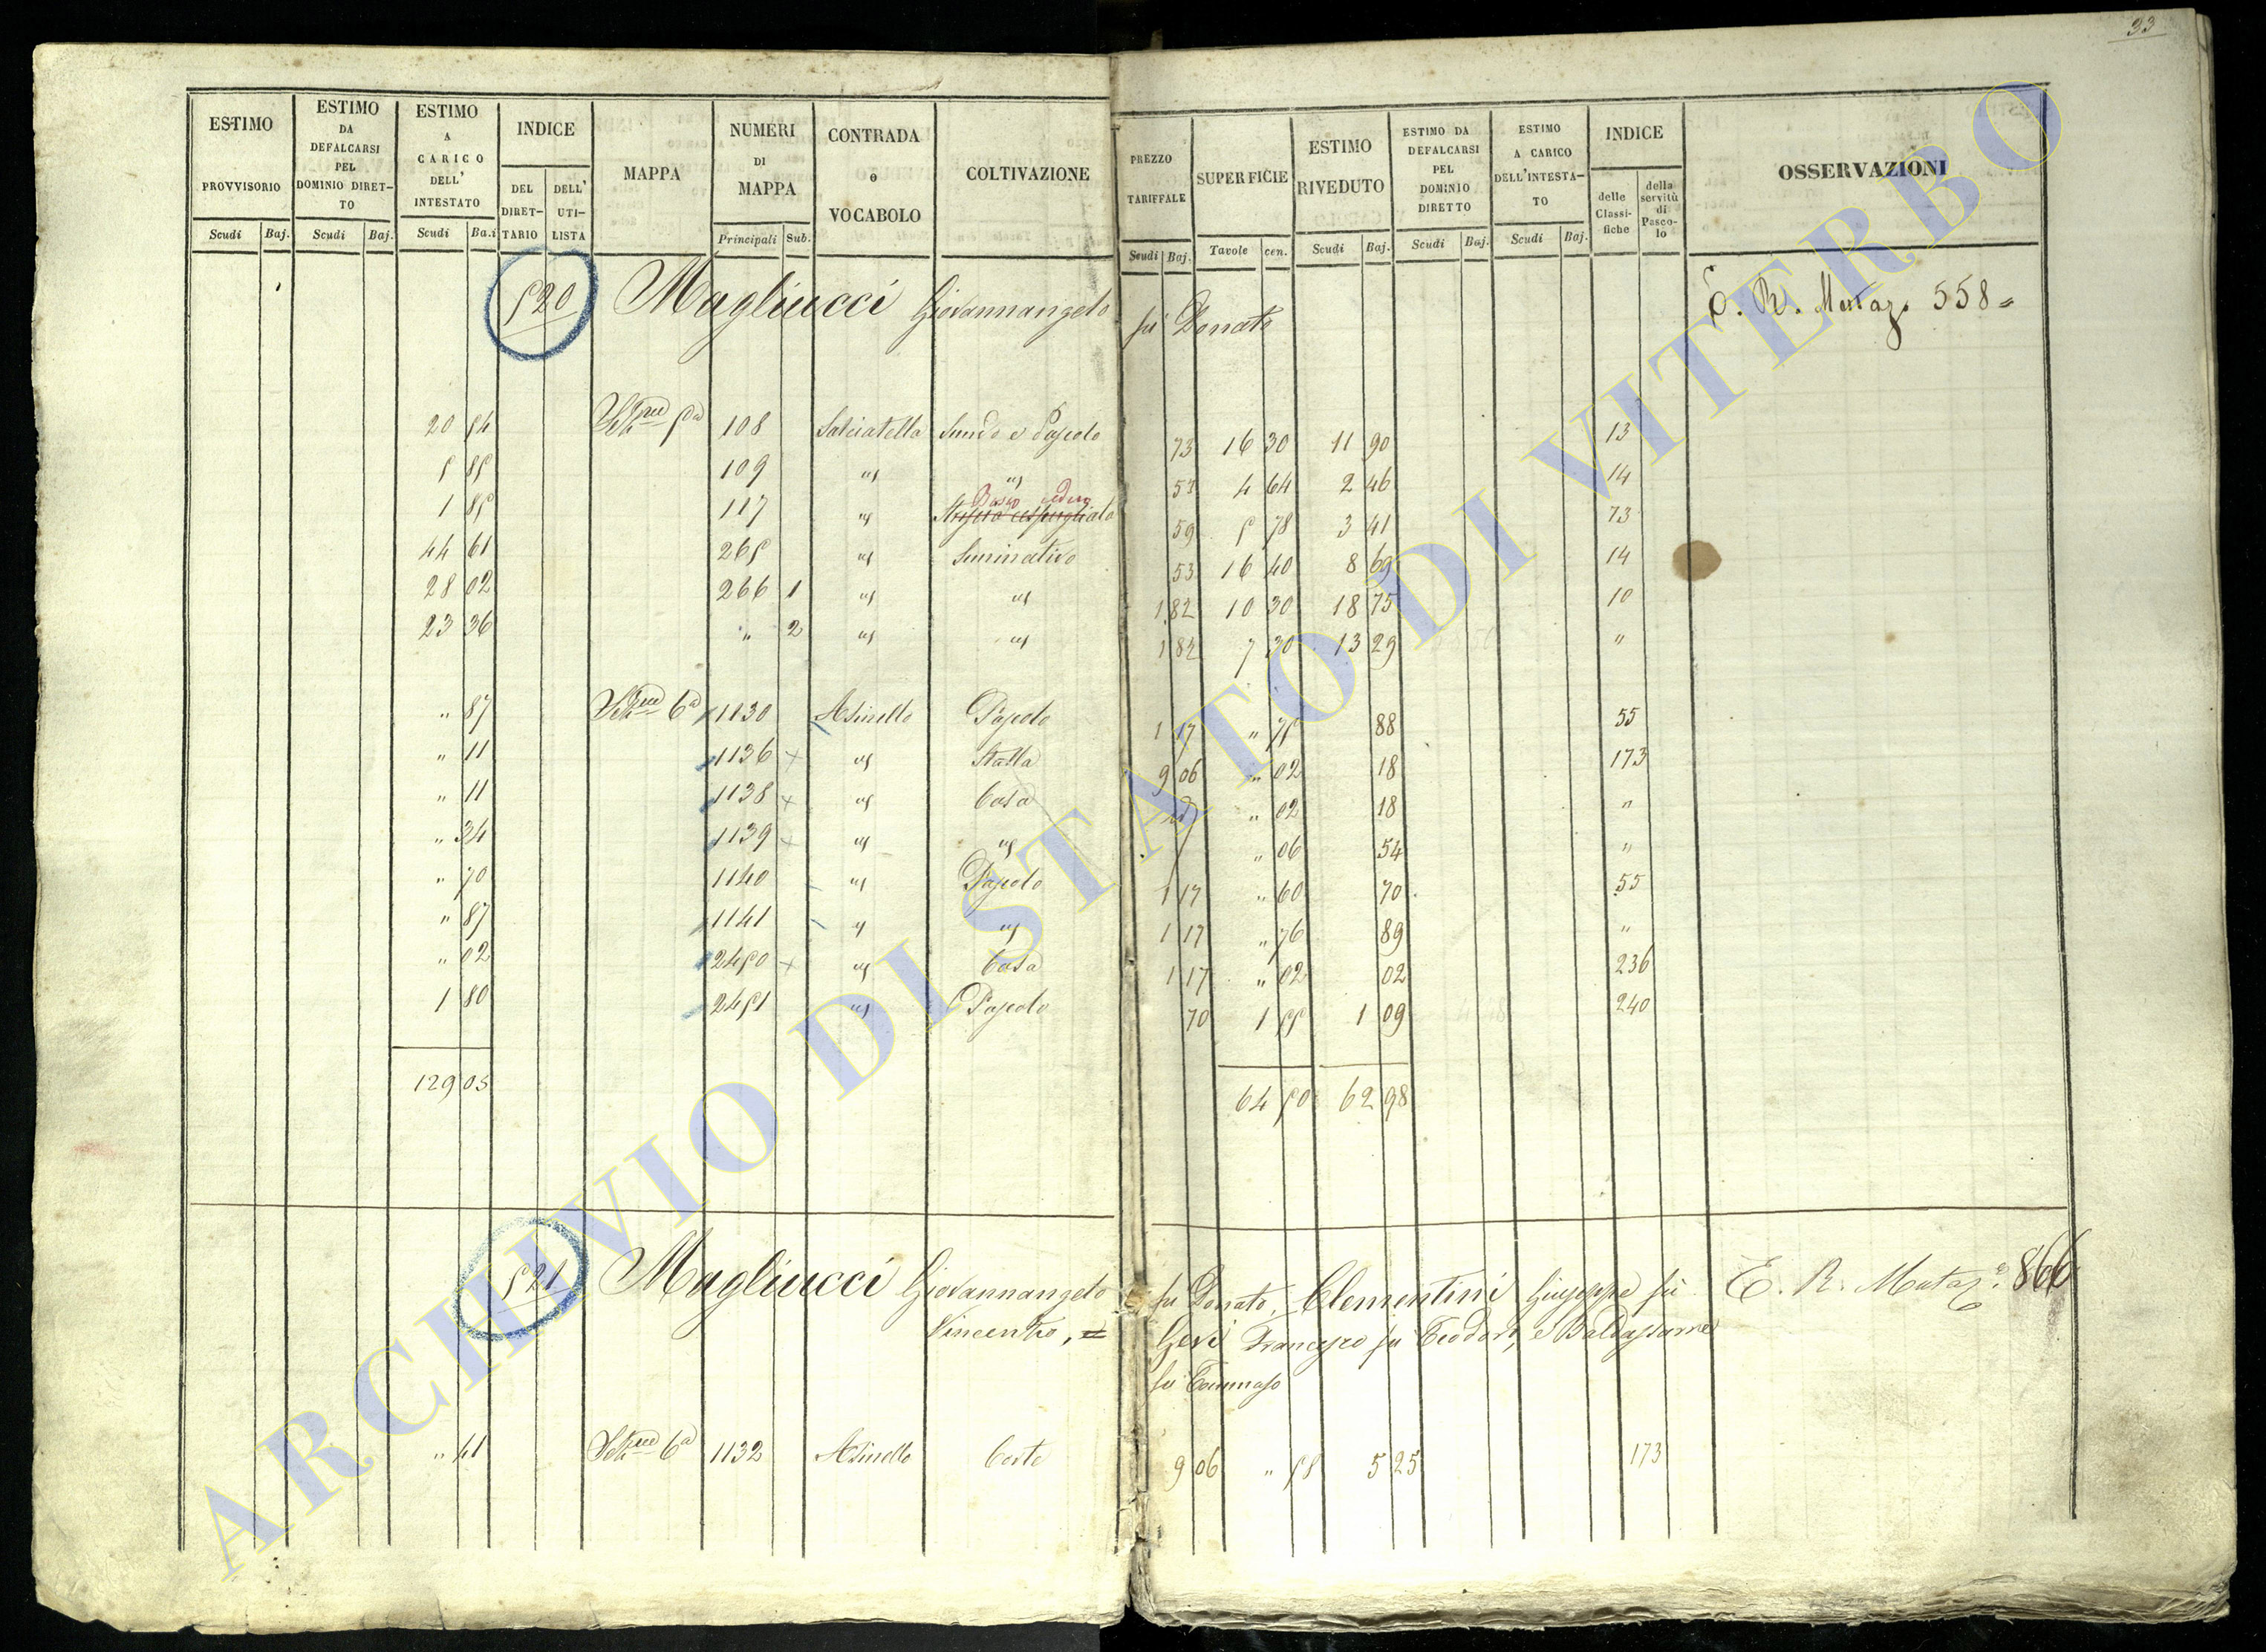 33
ESTIMO PROVVISORIO Scudi Baj.
ESTIMO DA DEFALCARSI PEL DOMINIO DIRETTO Scudi Baj.
ESTIMO A CARICO DELL' INTESTATO Scudi Ba.i
INDICE DEL DIRETTARIO DELL' UTILISTA
MAPPA
NUMERI DI MAPPA Principali Sub.
CONTRADA o VOCABOLO
COLTIVAZIONE
PREZZO TARIFFALE Scudi Baj.
SUPERFICIE Tavole cen.
ESTIMO RIVEDUTO Scudi Baj.
ESTIMO DA DEFALCARSI PEL DOMINIO DIRETTO Scudi Baj.
ESTIMO A CARICO DELL'INTESTATO Scudi Baj.
INDICE delle Classifiche della servitù di Pascolo
OSSERVAZIONI
520 Magliucci Giovannangelo fu Donato 558
20 54 5a 108 Salciatella e Pascolo 73 16 30 11 90 13
5 85 109 " " 53 4 64 2 46 14
Bosco ceduo
1 85 117 " 59 5 78 3 41 73
44 61 265 " Seminativo 53 16 40 8 69 14
28 02 266 1 " " 1 82 10 30 18 75 10
23 36 " 2 " " 1 82 7 30 13 29 "
" 87 6a 1130 Asinello Pascolo 1 17 " 75 88 55
" 11 1136 " Stalla 9 06 " 02 18 173
" 11 1138 " Casa " 02 18 "
" 34 1139 " " " 06 54 "
" 70 1140 " Pascolo 1 17 " 60 70 55
" 87 1141 " " 1 17 " 76 89 "
" 02 2450 " Casa 1 17 " 02 02 236
1 80 2451 " Pascolo 70 1 55 1 09 240
129 03 64 50 62 98
521 Magliucci Giovannangelo fu Donato, Clementini Giuseppe fu E. R. 866
Vincenzo, = Gevi Francesco fu Teodoro, e Baldassarre
fu Tommaso
" 41 6a 1132 Asinello Corte 9 06 " 58 5 25 173
ARCHIVIO DI STATO DI VITERBO